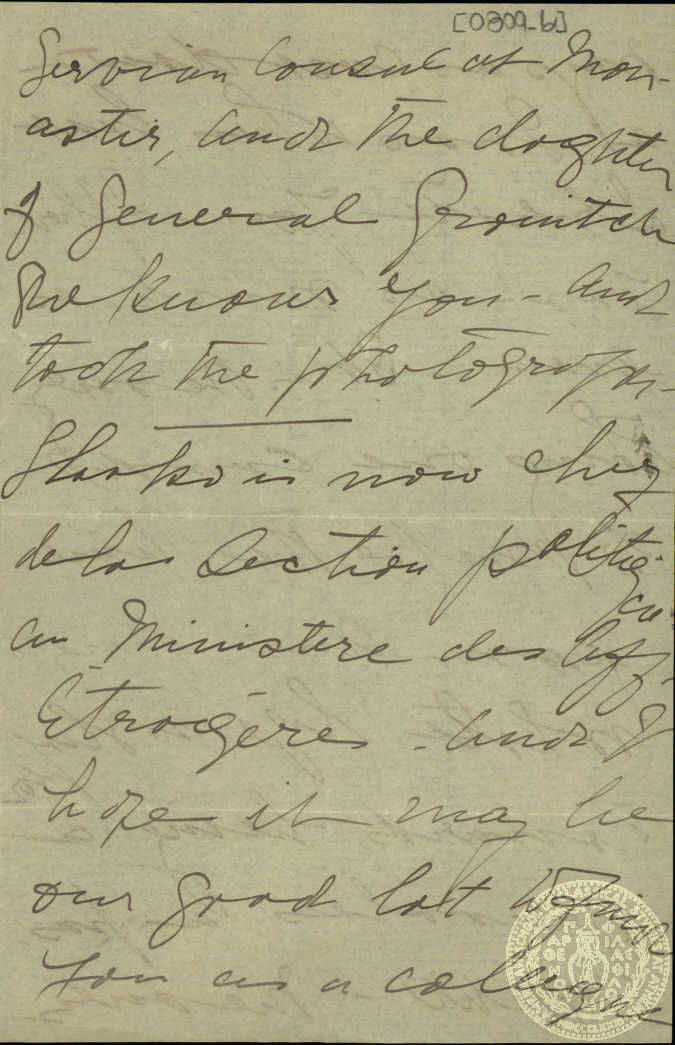 [0309-b]
Servian Consul at Mon-
astir, and the doghter
of General Grouitch
She knows you - and
took the photograph -
Slavko is now chef
de la Section politiq
ue
au Ministere des Aff.
Étrogères - and I
hope it may be
our good lot to find
you as a collegue